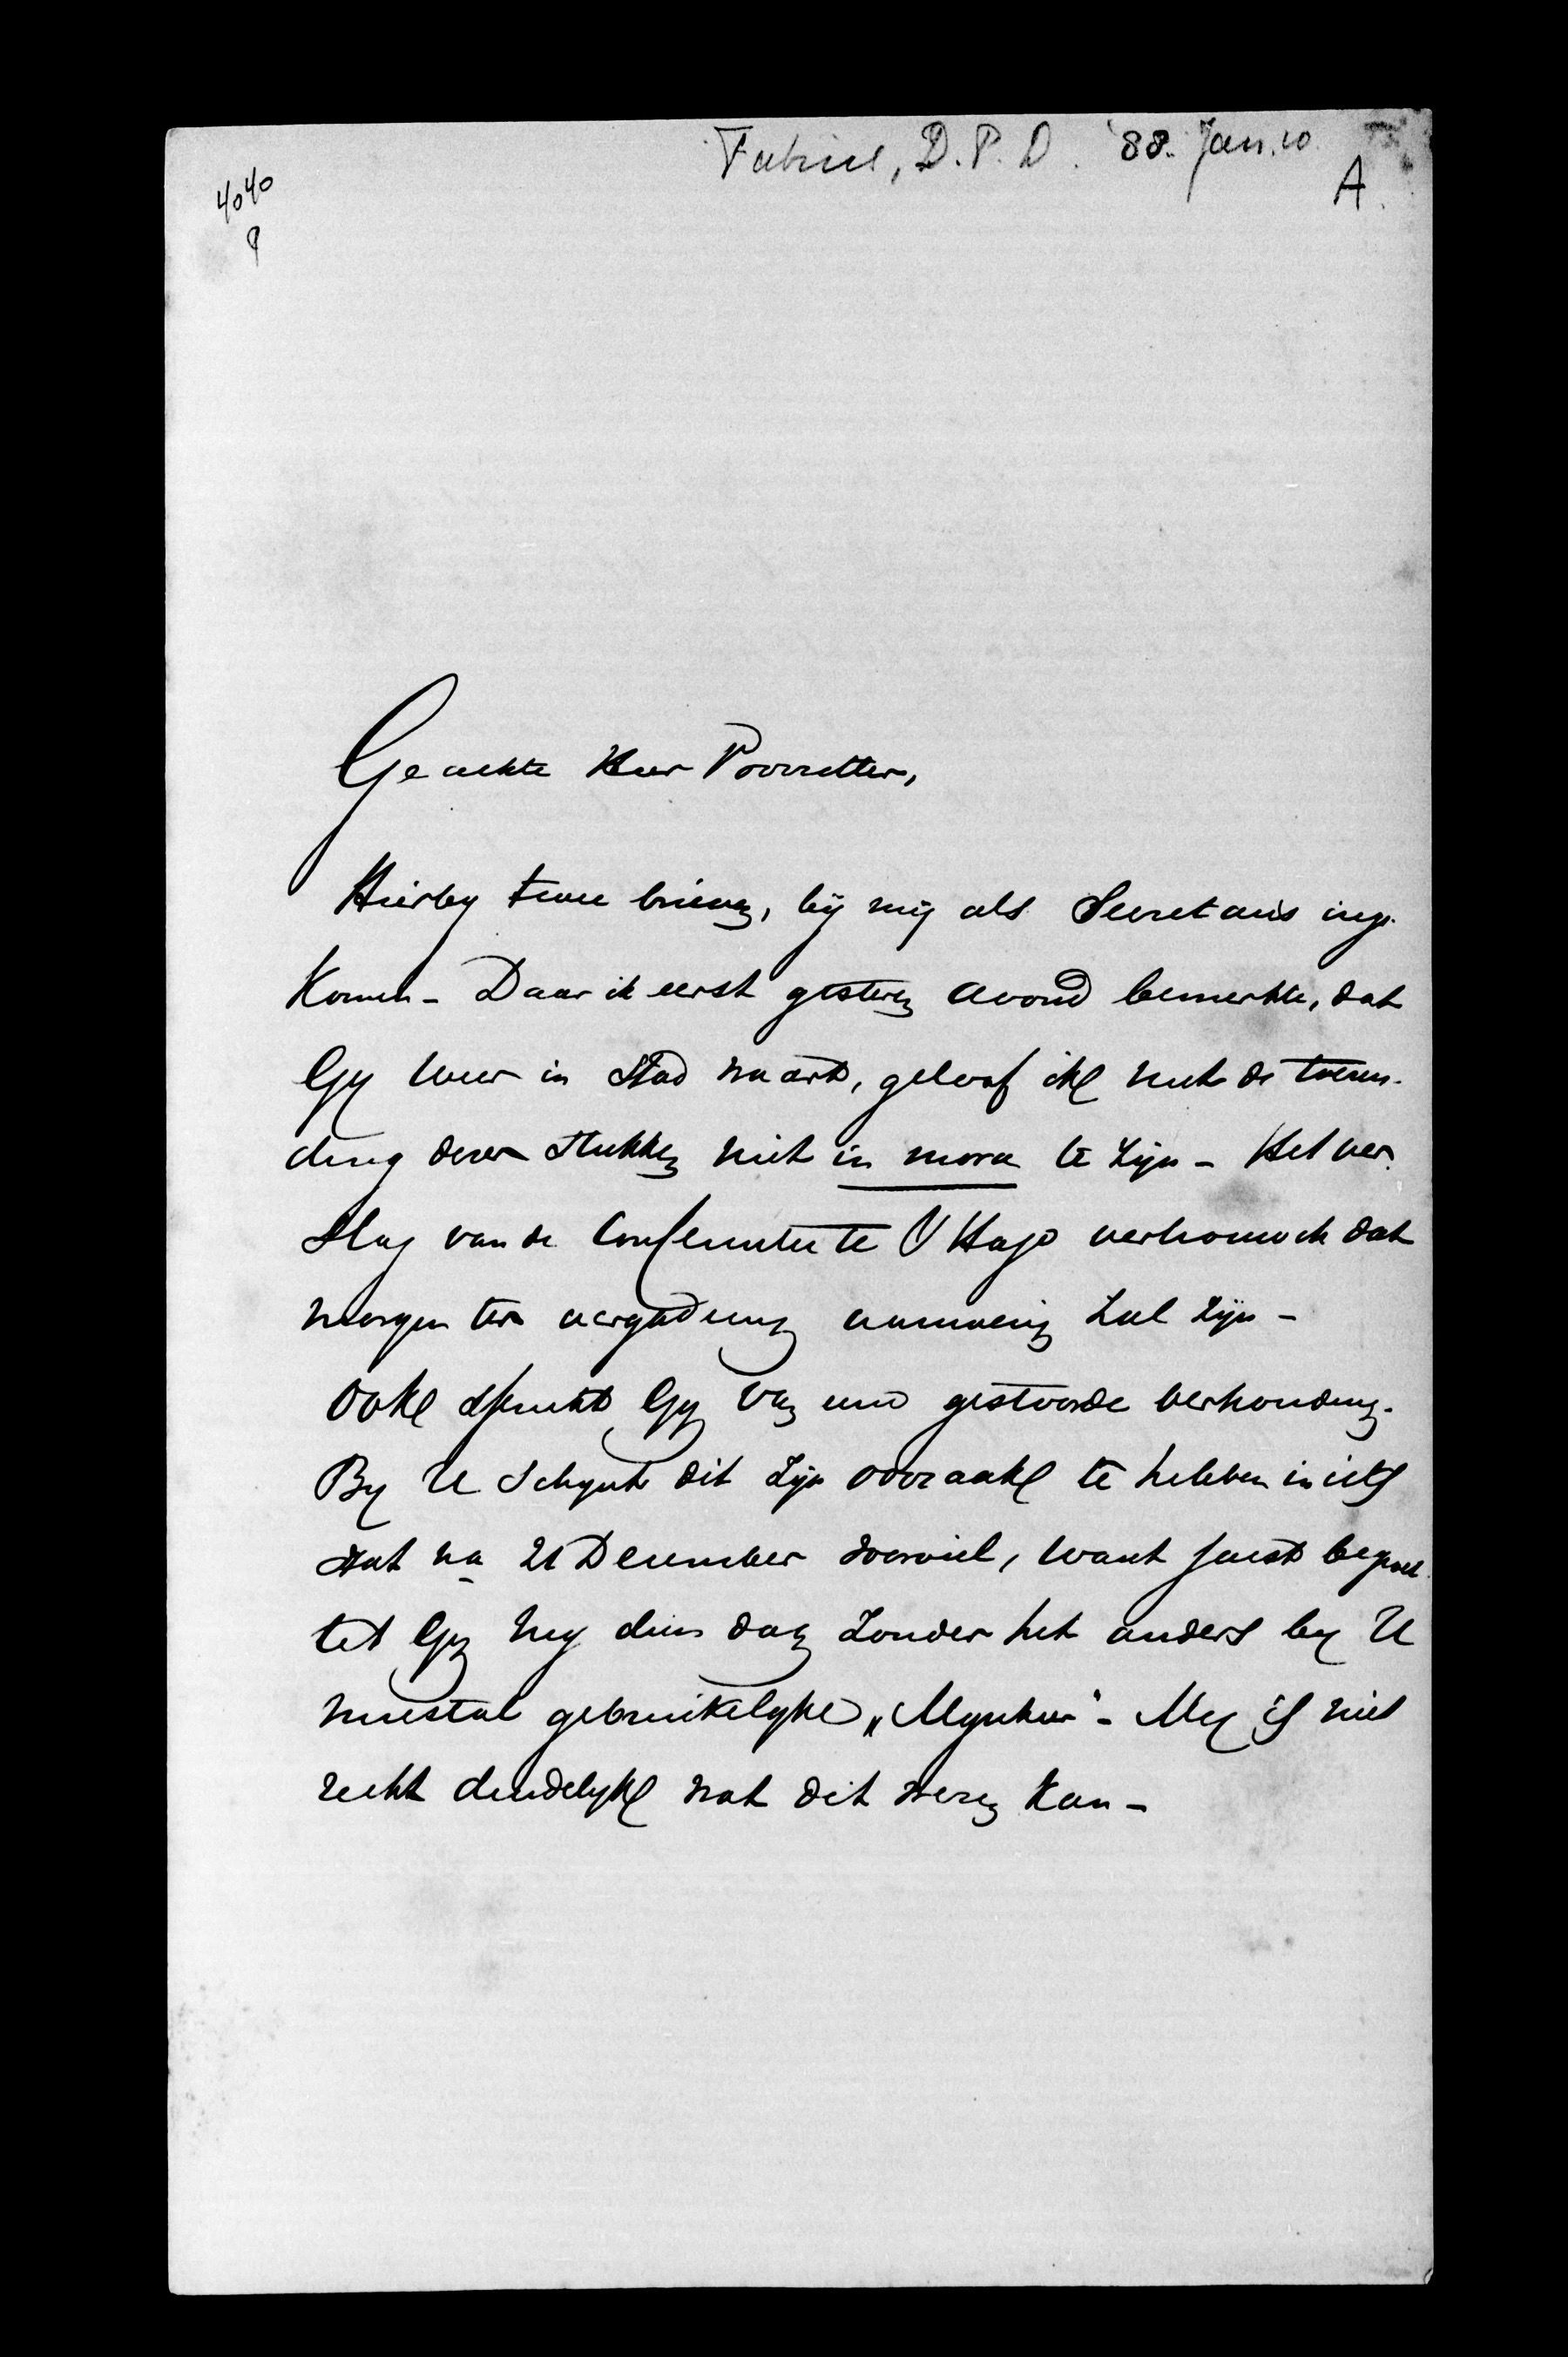 Fabius, D.P.D. '88. Jan. 10.
A.
4040
Geachte Heer Voorzitter,
Hierby twee brieven, bij mij als Secretaris inge-
komen - Daar ik eerst gisteren avond bemerkte, dat
Gy weer in Stad waart, geloof ik met de toezen-
ding dezer stukken niet in mora te zijn - Het ver-
slag van de Conferentie te 's Hage vertrouw ik dat
morgen ter vergadering aanwezig zal zijn -
Ook spreekt Gy van eene gestoorde verhouding.
By U schynt dit zijn oorzaak te hebben in iets
dat na 21 December voorviel, want juist begroet-
tet Gy my dien dag zonder het anders by U
meestal gebruikelyke „Mynheer" - My is niet
recht duidelyk wat dit wezen kan -